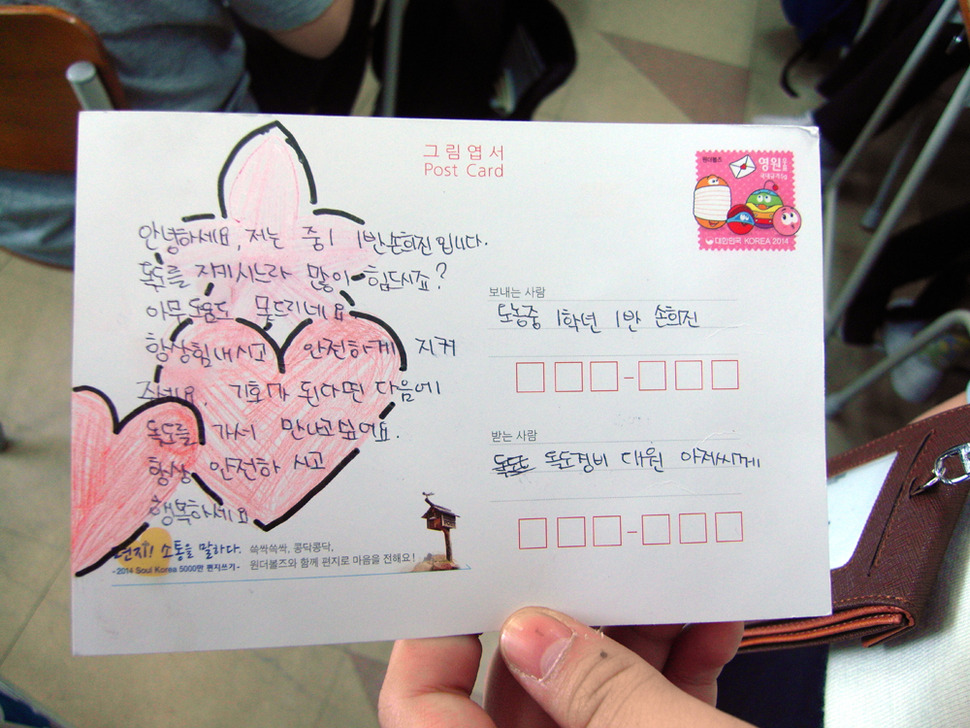 그림엽서
Post Card
원더볼즈
영원우표
국내규격5g
대한민국 KOREA 2014
안녕하세요, 저는 중1 1반 손희진 입니다.
독도를 지키시느라 많이 힘드시죠?
아무 도움도 못드리네요.
항상힘내시고 안전하게 지켜
주세요. 기회가 된다면 다음에
독도를 가서 만나고싶어요.
항상 안전하시고
행복하세요
보내는 사람
도농중 1학년 1반 손희진
받는 사람
독도경비 대원 아저씨께
편지! 소통을 말하다.
-2014 Soul Korea 5000만 편지쓰기-
쓱싹쓱싹, 콩닥콩닥,
원더볼즈와 함께 편지로 마음을 전해요!